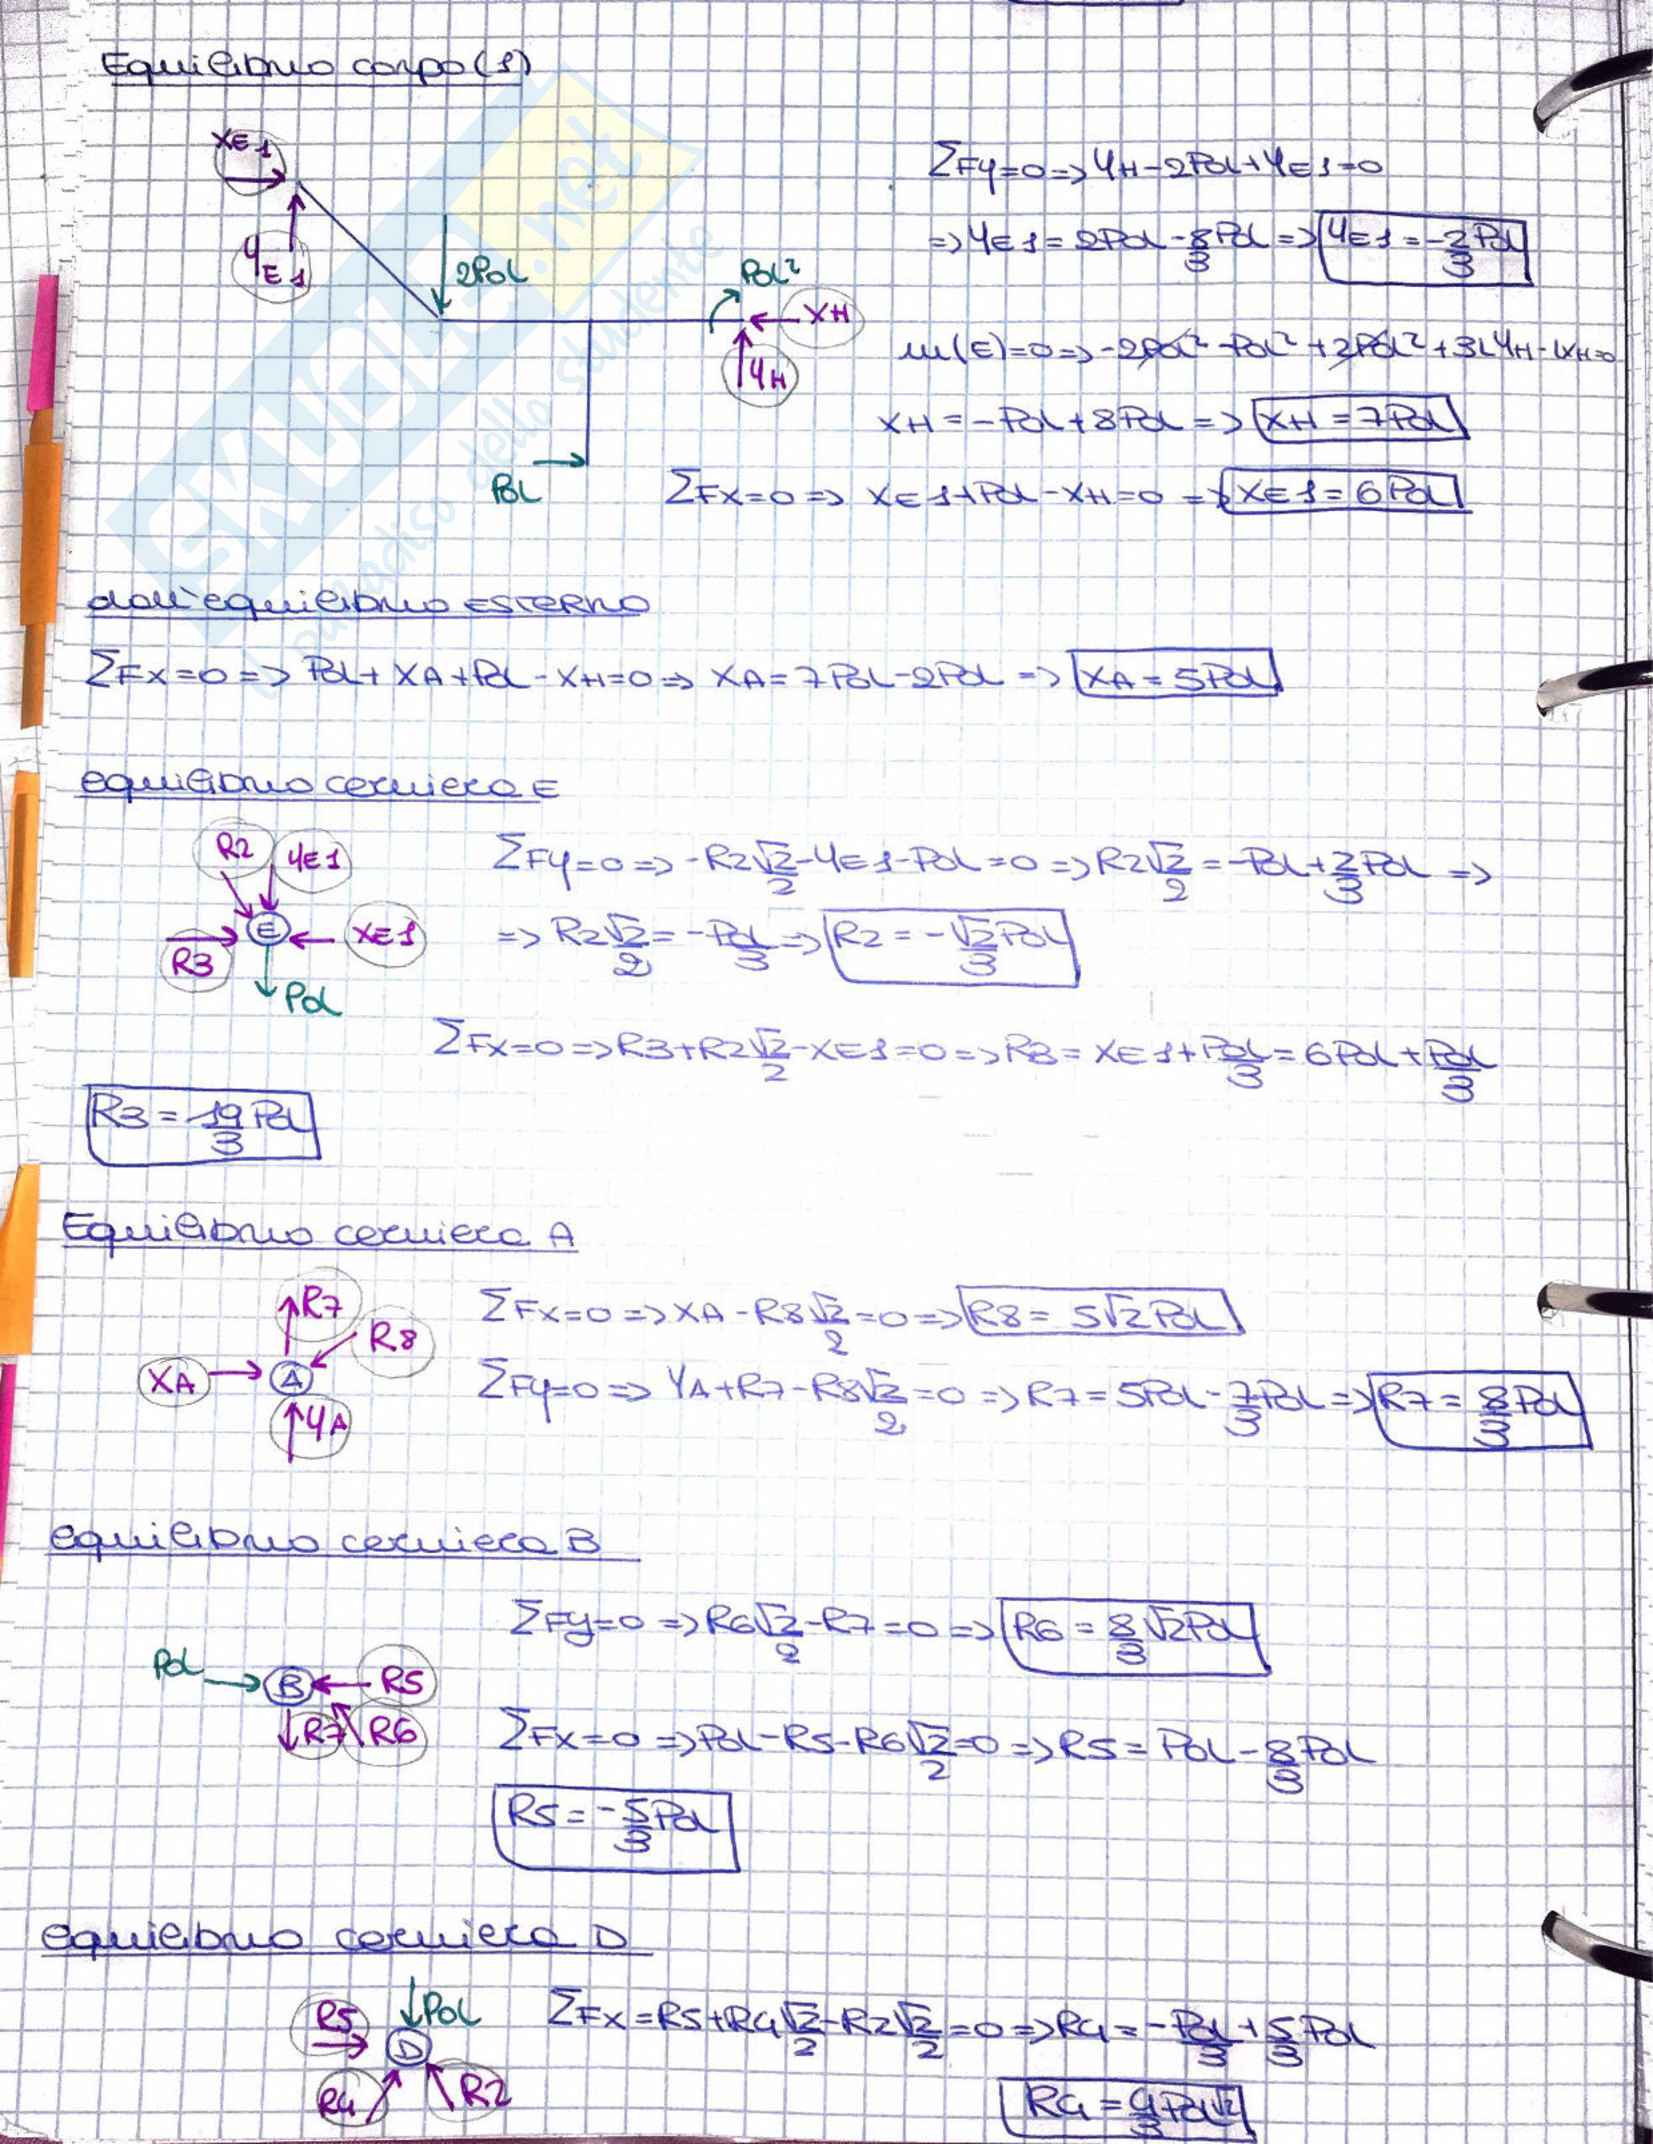 Equilibrio corpo (1)
XE1
YE1
2PoL
PoL²
XH
YH
PoL
ΣFy=0 => YH-2PoL+YE1=0
=> YE1 = 2PoL - 8/3 PoL => YE1 = -2/3 PoL
m(E)=0 => -2PoL² - PoL² + 2PoL² + 3LYH - LXH=0
XH = -PoL + 8PoL => XH = 7PoL
ΣFx=0 => XE1+PoL-XH=0 => XE1 = 6PoL
SKUOLA.net
paradiso dello studente
dall'equilibrio ESTERNO
ΣFx=0 => PoL + XA + PoL - XH=0 => XA = 7PoL-2PoL => XA = 5PoL
equilibrio cerniera E
R2
YE1
E
XE1
R3
PoL
ΣFy=0 => -R2 √2/2 - YE1 - PoL = 0 => R2 √2/2 = -PoL + 2/3 PoL =>
=> R2 √2/2 = -PoL/3 => R2 = -√2/3 PoL
ΣFx=0 => R3+R2 √2/2 - XE1=0 => R3 = XE1 + PoL/3 = 6PoL + PoL/3
R3 = 19/3 PoL
Equilibrio cerniera A
R7
R8
XA
A
YA
ΣFx=0 => XA - R8 √2/2 =0 => R8 = 5√2PoL
ΣFy=0 => YA+R7-R8 √2/2 =0 => R7 = 5PoL - 7/3 PoL => R7 = 8/3 PoL
equilibrio cerniera B
PoL
B
R5
R7
R6
ΣFy=0 => R6 √2/2 - R7 =0 => R6 = 8/3 √2PoL
ΣFx=0 => PoL-R5-R6 √2/2 =0 => R5 = PoL - 8/3 PoL
R5 = -5/3 PoL
equilibrio cerniera D
R5
PoL
D
R4
R2
ΣFx = R5+R4 √2/2 - R2 √2/2 =0 => R4 = -PoL/3 + 5/3 PoL
R4 = 4/3 PoL√2